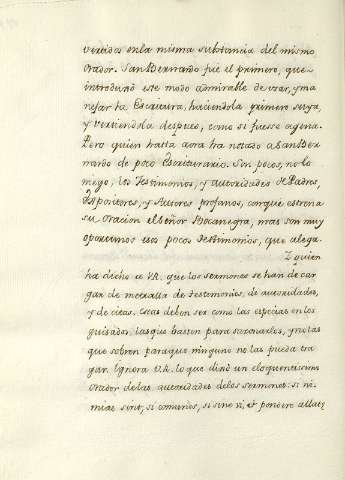 vertidos en la misma substancia del mismo
Orador. San Bernardo fue el primero, que
introduxo este modo admirable de usar, y ma
nejar la Escritura, haciendola primero suya,
y virtiendola despues, como si fuesse agena.
Pero quien hasta aora ha notado a San Ber-
nardo de poco Escriturario. Son pocos, no lo
niego, los Testimonios, y autoridades de Padres,
Expositores, y Autores profanos, conque estrena
su Oracion el Señor Bocanegra, mas son muy
oportunos esos pocos testimonios, que alega.
Y quien
ha dicho a V.R. que los sermones se han de car
gar de metralla de testimonios, de autoridades,
y de citas. Estas deben ser como las especias en los
guisados, las que basten para sazonarlos, y no las
que sobren para que ninguno no las pueda tra
gar. Ignora V.R. lo que dixo un eloquentissimo
Orador de las autoridades de los sermones: si ni-
miae sint, si communes, si sine vi, et pondere